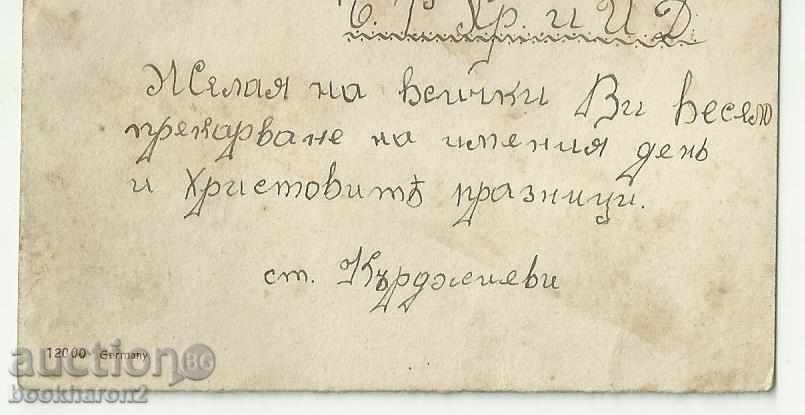 Хр. и И Д
Желая на всички Ви весело
прекарване на имения день
и Христовитѣ празници.
ст. Кърджиеви
12000 Germany
auction BG
bookharon2